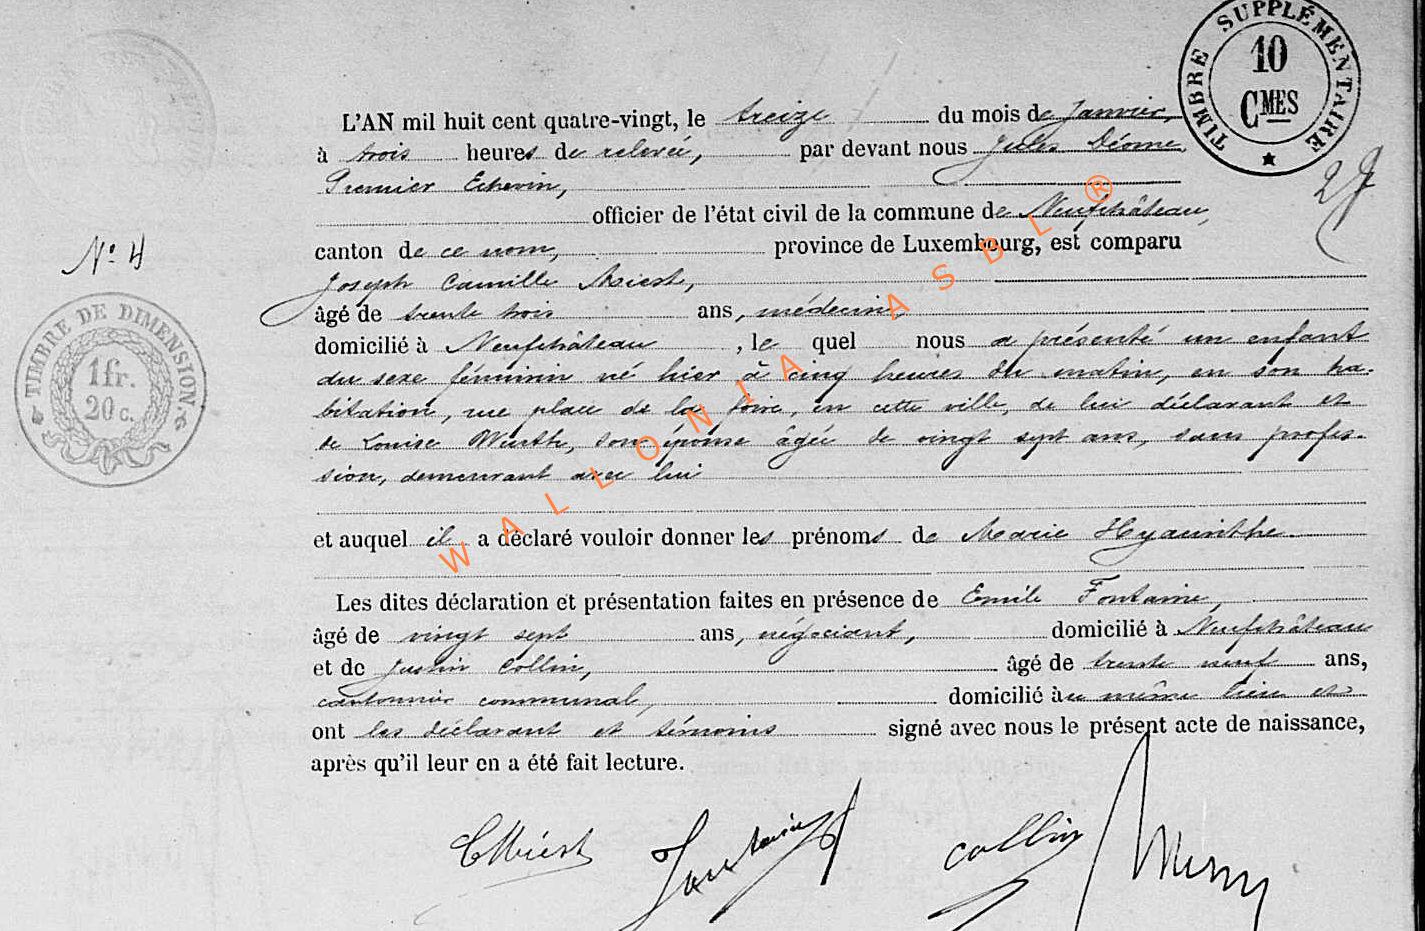 TIMBRE SUPPLÉMENTAIRE
10
CMES
L'AN mil huit cent quatre-vingt, le treize du mois de Janvier,
à trois heures de relevée, par devant nous Jules Déome,
Premier Echevin,
officier de l'état civil de la commune de Neufchâteau,
canton de ce nom, province de Luxembourg, est comparu
Nº 4
Joseph Camille
âgé de trente trois ans, médecin,
domicilié à Neufchâteau, le quel nous a présenté un enfant
du sexe féminin né hier à cinq heures du matin, en son ha-
bitation, rue place de la foire, en cette ville, de lui déclarant et
de Louise son épouse âgée de vingt sept ans, sans profes-
sion, demeurant avec lui
TIMBRE DE DIMENSION.
1 fr.
20 c.
et auquel il a déclaré vouloir donner les prénoms de Marie Hyacinthe
Les dites déclaration et présentation faites en présence de Emile Fontaine,
âgé de vingt sept ans, négociant, domicilié à Neufchâteau
et de Justin Collin, âgé de trente neuf ans,
cantonnier communal, domicilié au même lieu et
ont les déclarant et témoins signé avec nous le présent acte de naissance,
après qu'il leur en a été fait lecture.
Fontaine
Collin
WALLONIA ASBL ®